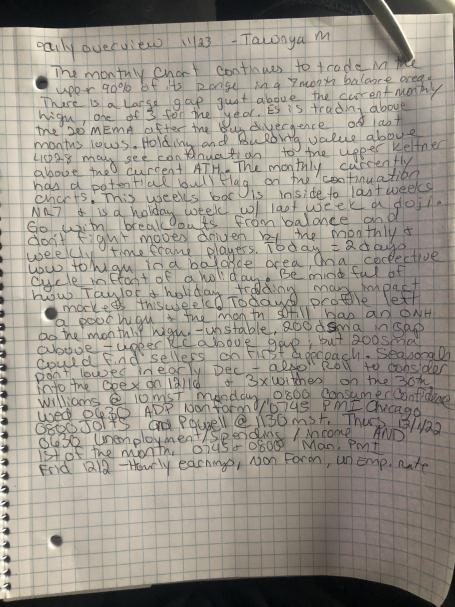 daily overview 11/23 - Tawnya M
The monthly chart continues to trade in the
upper 90% of its range in a 7 month balance area.
There is a large gap just above the current monthly
high, one of 3 for the year. ES is trading above
the 20 MEMA after the buy divergence of last
months lows. Holding and building value above
may see continuation to the upper Keltner
above the current ATH. The monthly currently
has a potential bull flag on the continuation
charts. This weeks bar is inside to last weeks
NR7 & is a holiday week w/ last week a doji.
Go with breakouts from balance and
don't fight moves driven by the monthly &
weekly time frame players. Today = 2 days
low to high in a balance area in a corrective
cycle in front of a holiday. Be mindful of
how Taylor & holiday trading may impact
markets this week. Todays profile left
a poor high & the month still has an ONH
as the monthly high. - unstable. 200dsma in gap
above - upper KC above gap, but 200sma
could find sellers on first approach. Seasonals
point lower in early Dec - also Roll to consider
into the Opex on 12/16 & 3x witches on the 30th
Williams @ 10 MST Monday, 0800 Consumer Confidence
Wed 0630 ADP Nonform/0745 PMI Chicago
0800 JOLTS and Powell @ 1130 mst. Thur 12/1/22
0630 Unemployment/Spending/Income AND
1st of the month. 0745 & 0800 Man. PMI
Frid 12/2 - Hourly earnings, Non Farm, un Emp. Rate